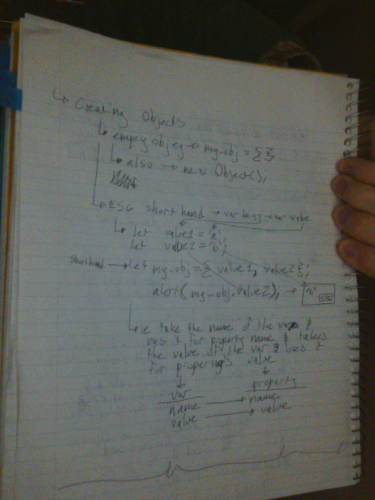 ↳ Creating Objects
↳ empty obj eg → my-obj = {}
↳ also → new Object();
↳ ES6 short hand → var key → var value
↳ let value1 = 'a';
let value2 = 'b';
shorthand → let my-obj = { value1, value2 };
alert( my-obj.value2); → 'b'
↳ we take the name of the var &
uses it for property name & takes
the value of the var & uses it
for property's value
var property
name → name
value → value